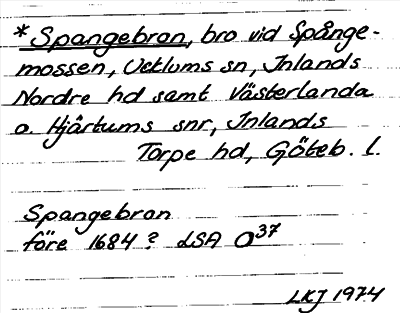 *Spangebron, bro vid Spånge-
mossen, Ucklums sn, Inlands
Nordre hd samt Västerlanda
o. Hjärtums snr, Inlands
Torpe hd, Göteb. l.
Spangebron
före 1684? LSA O37
LKJ 1974